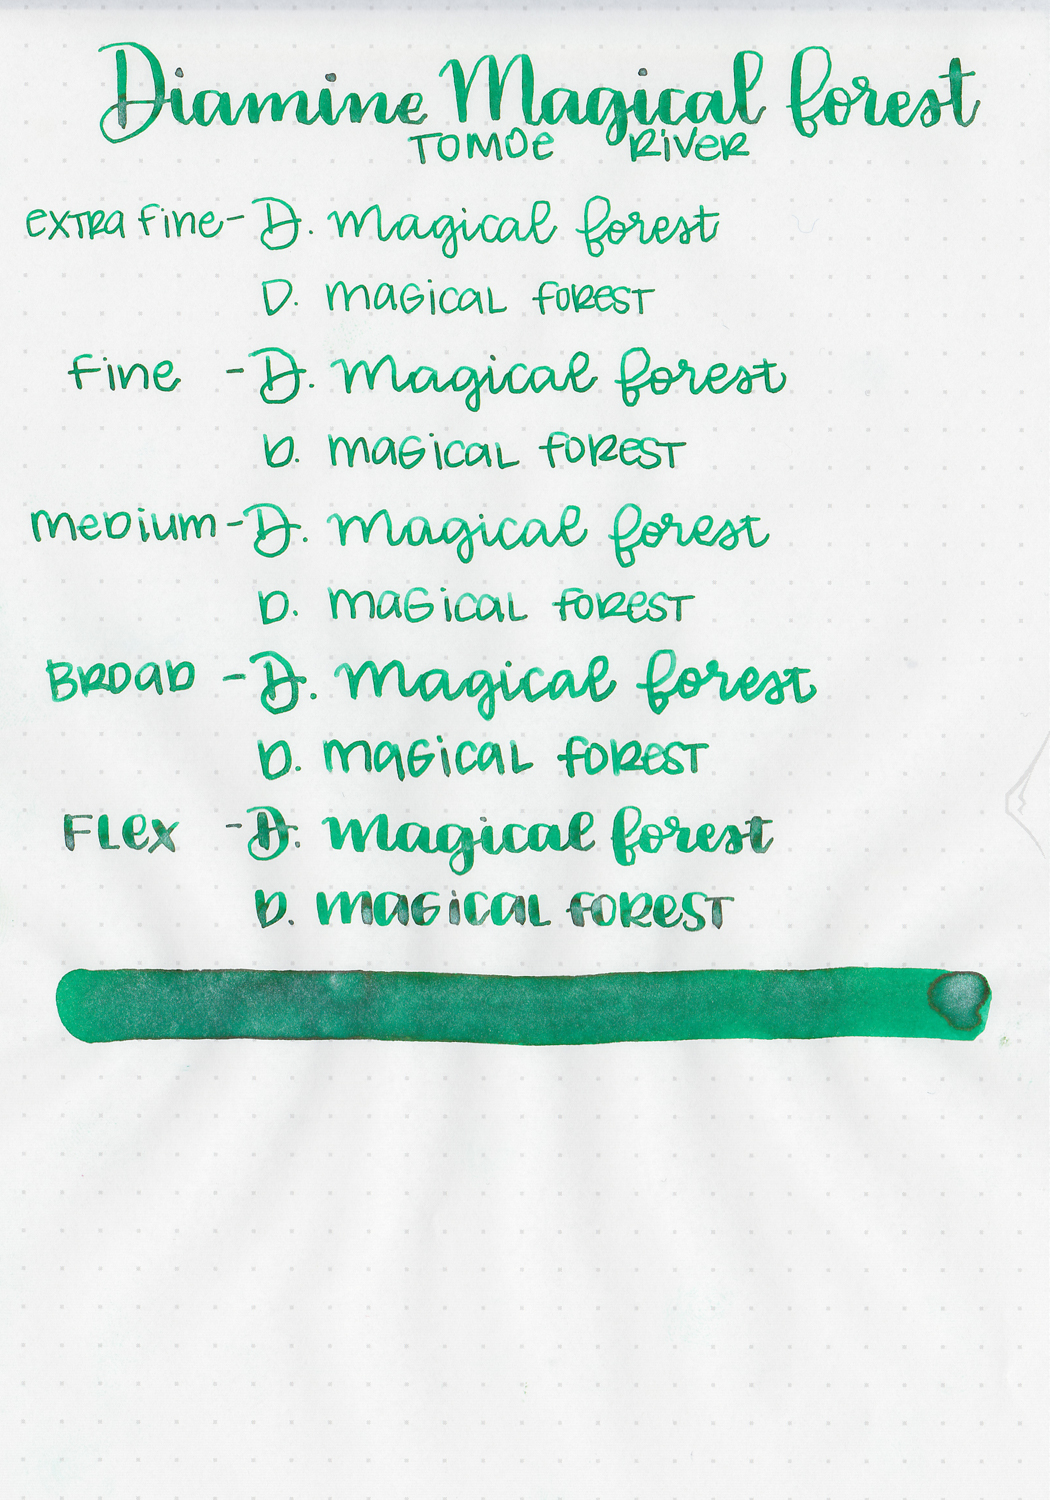 Diamine Magical forest
TOMOE RiVER
eXTRA fine - D. Magical forest
D. MAGICAL FOREST
fine - D. Magical forest
D. MAGICAL FOREST
MeDium - D. Magical forest
D. MAGICAL FOREST
BROAD - D. Magical forest
D. MAGICAL FOREST
FLex - D. Magical forest
D. MAGICAL FOREST